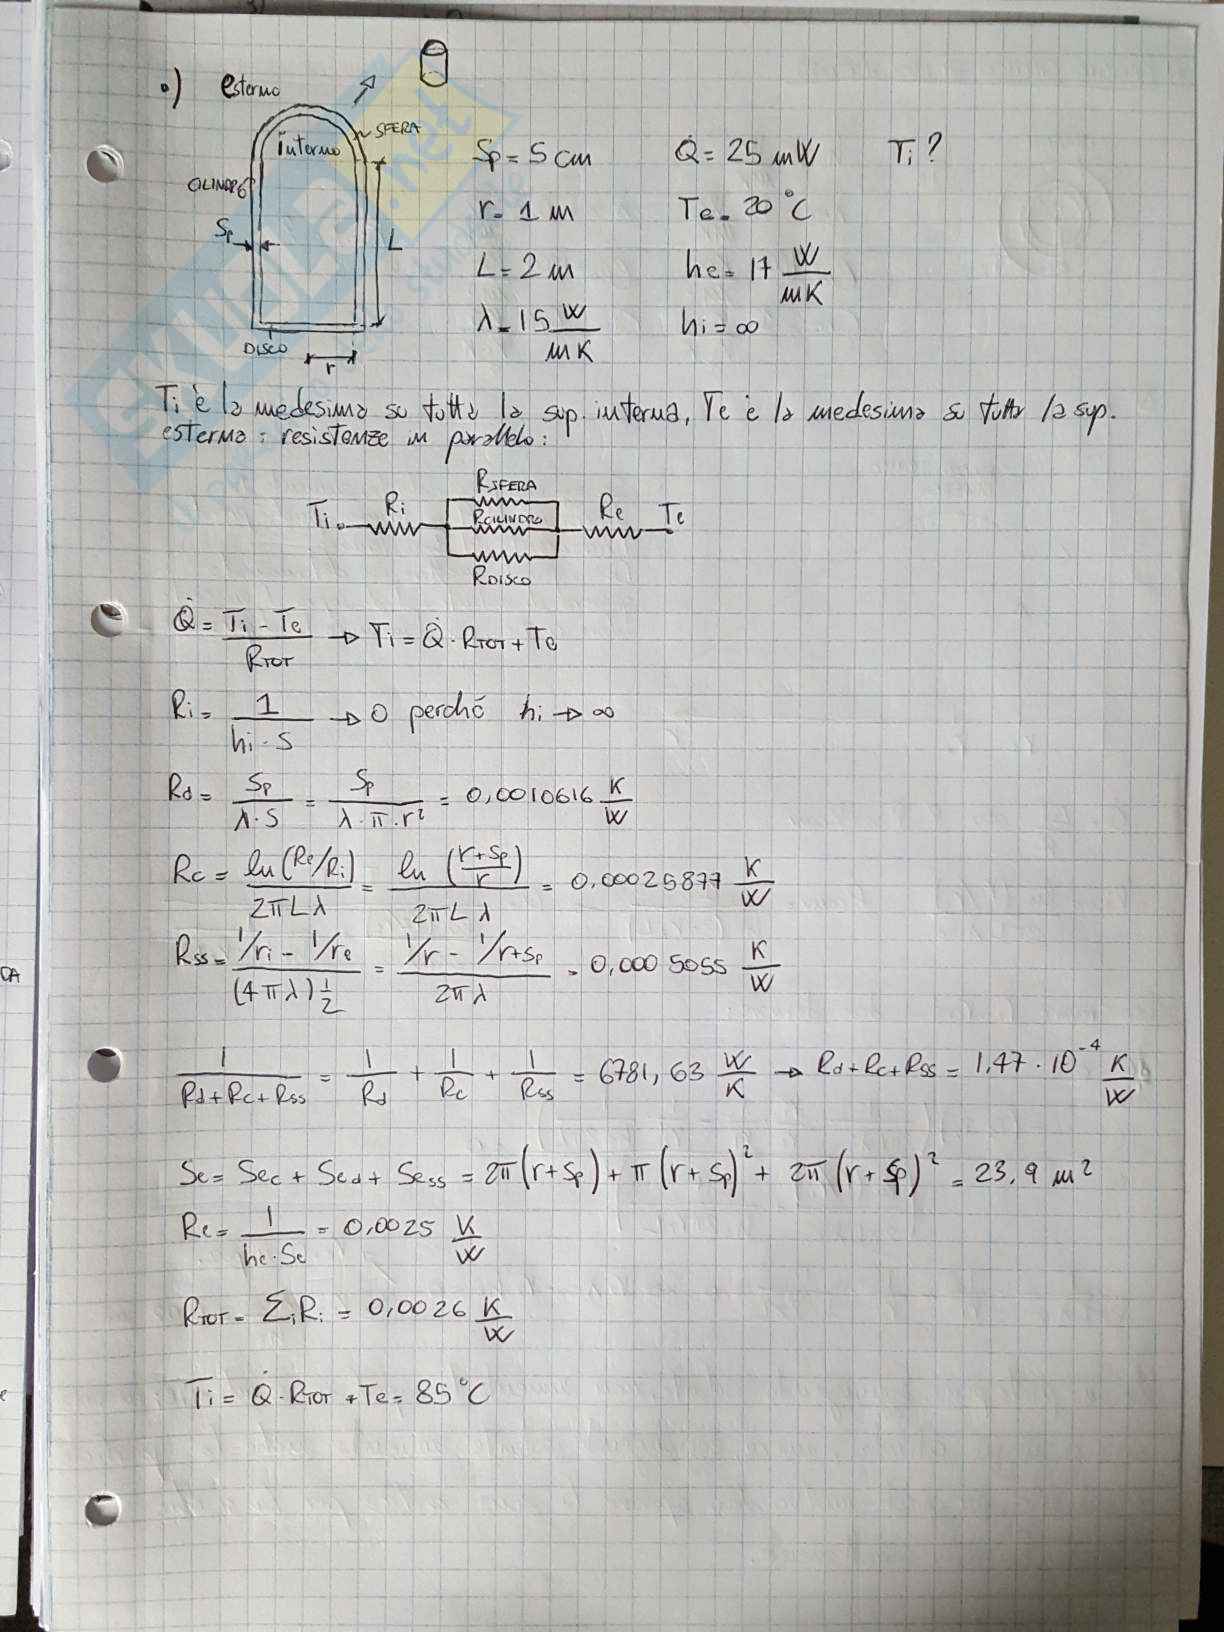 •) esterno
interno
SFERA
CILINDRO
Sp
L
DISCO
r
Sp = 5 cm Q̇ = 25 mW Ti?
r = 1 m Te = 20 °C
L = 2 m he = 17 W/mK
λ = 15 W/mK hi = ∞
Ti è la medesima su tutta la sup. interna, Te è la medesima su tutta la sup.
esterna: resistenze in parallelo:
Ti Ri RSFERA Re Te
RCILINDRO
RDISCO
Q̇ = (Ti - Te)/RTOT → Ti = Q̇ · RTOT + Te
Ri = 1/(hi · S) → 0 perché hi → ∞
Rd = Sp/(λ · S) = Sp/(λ · π · r²) = 0,0010616 K/W
Rc = ln(Re/Ri)/(2πLλ) = ln((r+Sp)/r)/(2πLλ) = 0,00025877 K/W
Rss = (1/ri - 1/re)/((4πλ)1/2) = (1/r - 1/r+Sp)/(2πλ) = 0,0005055 K/W
1/(Rd+Rc+Rss) = 1/Rd + 1/Rc + 1/Rss = 6781,63 W/K → Rd+Rc+Rss = 1,47 · 10⁻⁴ K/W
Se = Sec + Sed + Sess = 2π(r+Sp) + π(r+Sp)² + 2π(r+Sp)² = 23,9 m²
Re = 1/(he·Se) = 0,0025 K/W
RTOT = Σi Ri = 0,0026 K/W
Ti = Q̇ · RTOT + Te = 85 °C
DA